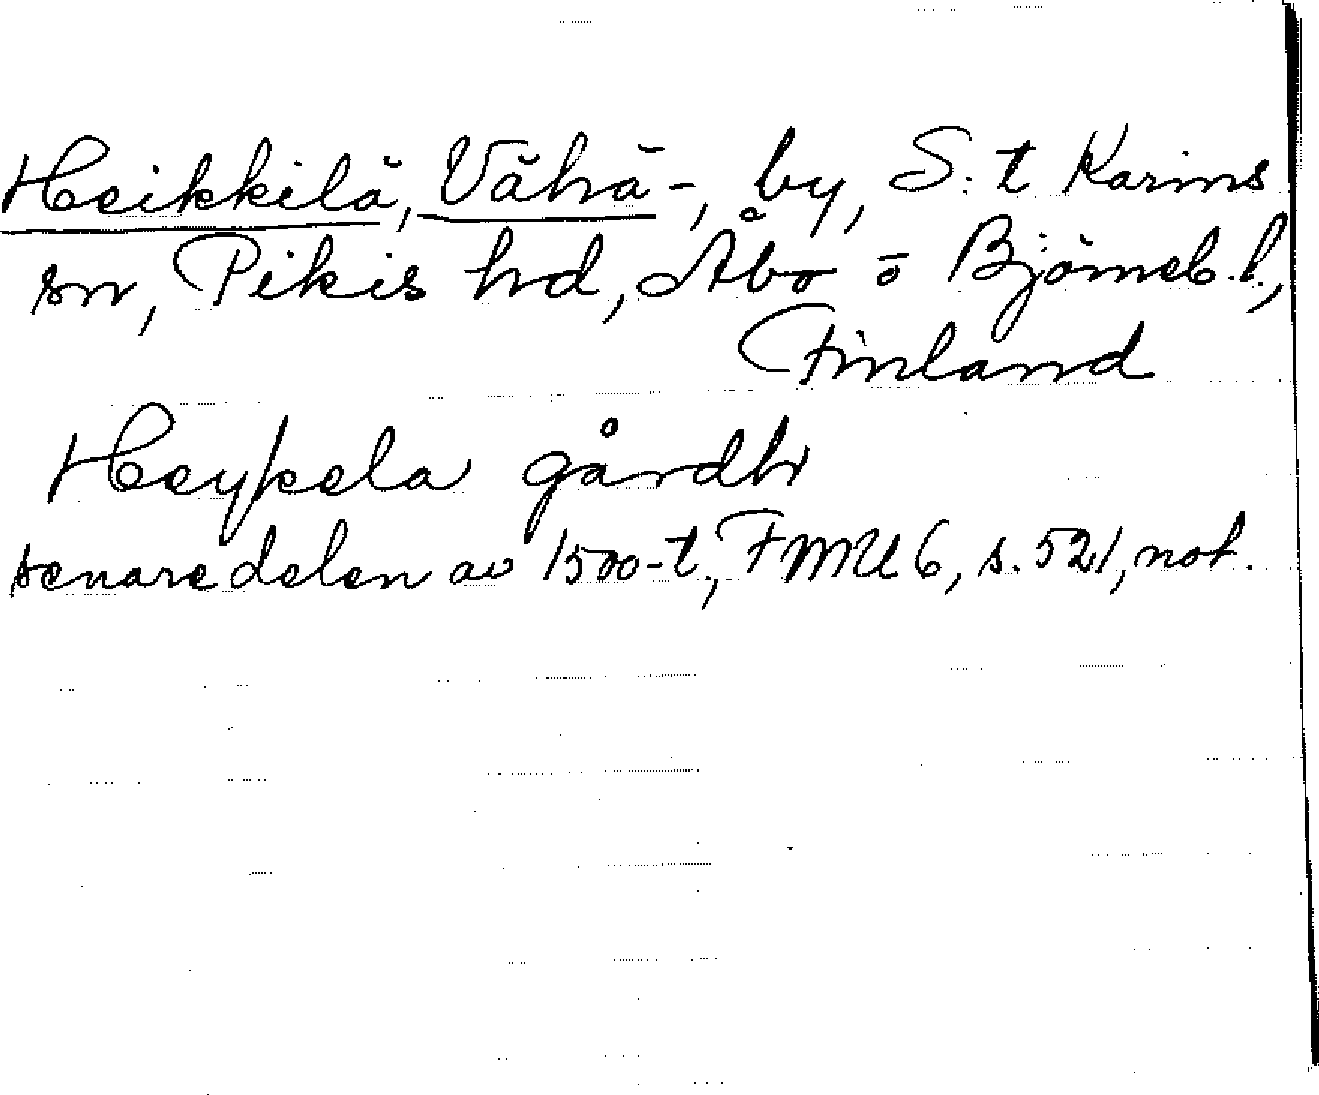 Heikkilä, Vähä-, by, S:t Karins
sn, Pikis hd, Åbo o Björneb. l.,
Finland
Heykela gårdh
senare delen av 1500-t, FMU 6, s. 521, not.